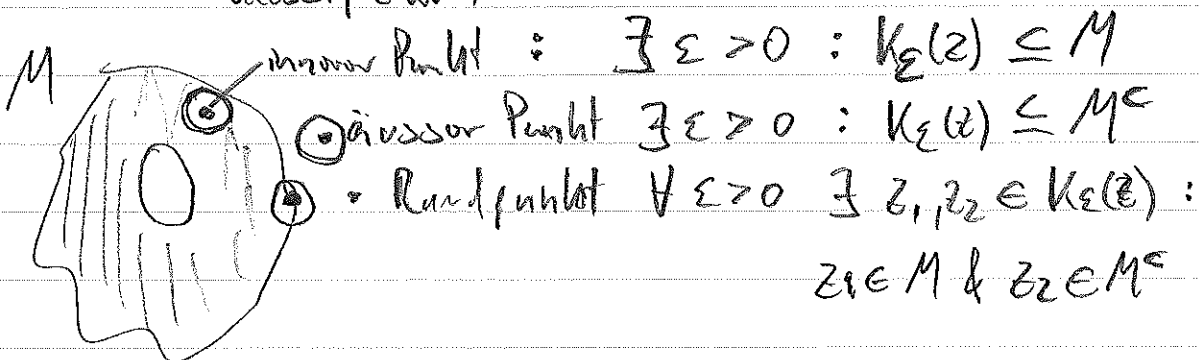 M innerer Punkt : ∃ ε > 0 : K_ε(z) ⊆ M
äusserer Punkt ∃ ε > 0 : K_ε(z) ⊆ M^c
• Randpunkt ∀ ε > 0 ∃ z₁, z₂ ∈ K_ε(z) :
z₁ ∈ M & z₂ ∈ M^c